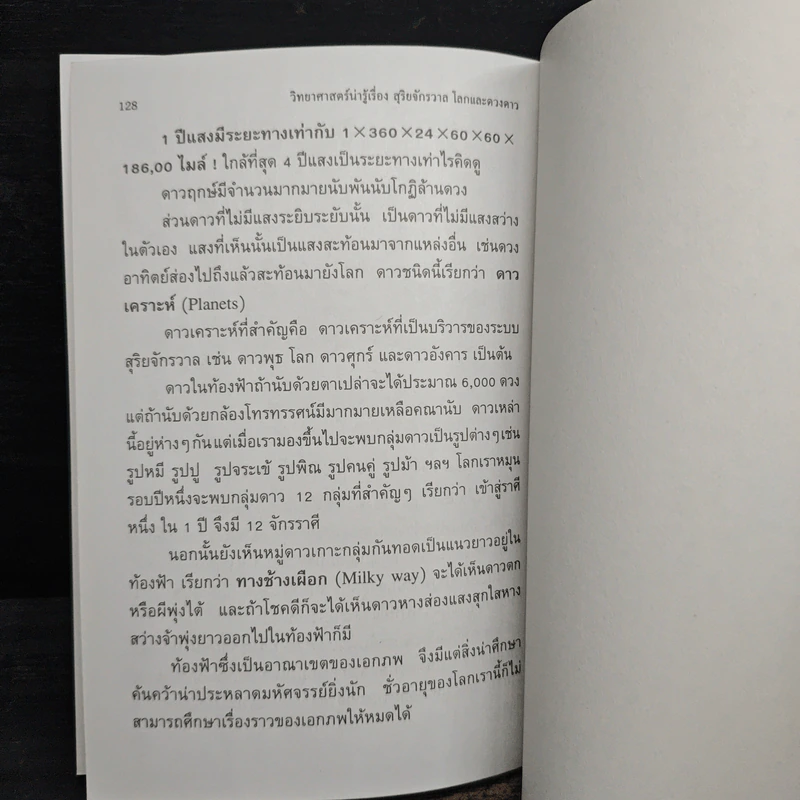 128
วิทยาศาสตร์น่ารู้เรื่อง สุริยจักรวาล โลกและดวงดาว
1 ปีแสงมีระยะทางเท่ากับ 1×360×24×60×60×
186,00 ไมล์ ! ใกล้ที่สุด 4 ปีแสงเป็นระยะทางเท่าไรคิดดู
ดาวฤกษ์มีจำนวนมากมายนับพันนับโกฏิล้านดวง
ส่วนดาวที่ไม่มีแสงระยิบระยับนั้น เป็นดาวที่ไม่มีแสงสว่าง
ในตัวเอง แสงที่เห็นนั้นเป็นแสงสะท้อนมาจากแหล่งอื่น เช่นดวง
อาทิตย์ส่องไปถึงแล้วสะท้อนมายังโลก ดาวชนิดนี้เรียกว่า ดาว
เคราะห์ (Planets)
ดาวเคราะห์ที่สำคัญคือ ดาวเคราะห์ที่เป็นบริวารของระบบ
สุริยจักรวาล เช่น ดาวพุธ โลก ดาวศุกร์ และดาวอังคาร เป็นต้น
ดาวในท้องฟ้าถ้านับด้วยตาเปล่าจะได้ประมาณ 6,000 ดวง
แต่ถ้านับด้วยกล้องโทรทรรศน์มีมากมายเหลือคณานับ ดาวเหล่า
นี้อยู่ห่างๆกันแต่เมื่อเรามองขึ้นไปจะพบกลุ่มดาวเป็นรูปต่างๆเช่น
รูปหมี รูปปู รูปจระเข้ รูปพิณ รูปคนคู่ รูปม้า ฯลฯ โลกเราหมุน
รอบปีหนึ่งจะพบกลุ่มดาว 12 กลุ่มที่สำคัญๆ เรียกว่า เข้าสู่ราศี
หนึ่ง ใน 1 ปี จึงมี 12 จักรราศี
นอกนั้นยังเห็นหมู่ดาวเกาะกลุ่มกันทอดเป็นแนวยาวอยู่ใน
ท้องฟ้า เรียกว่า ทางช้างเผือก (Milky way) จะได้เห็นดาวตก
หรือผีพุ่งได้ และถ้าโชคดีก็จะได้เห็นดาวหางส่องแสงสุกใสหาง
สว่างจ้าพุ่งยาวออกไปในท้องฟ้าก็มี
ท้องฟ้าซึ่งเป็นอาณาเขตของเอกภพ จึงมีแต่สิ่งน่าศึกษา
ค้นคว้าน่าประหลาดมหัศจรรย์ยิ่งนัก ชั่วอายุของโลกเรานี้ก็ไม่
สามารถศึกษาเรื่องราวของเอกภพให้หมดได้